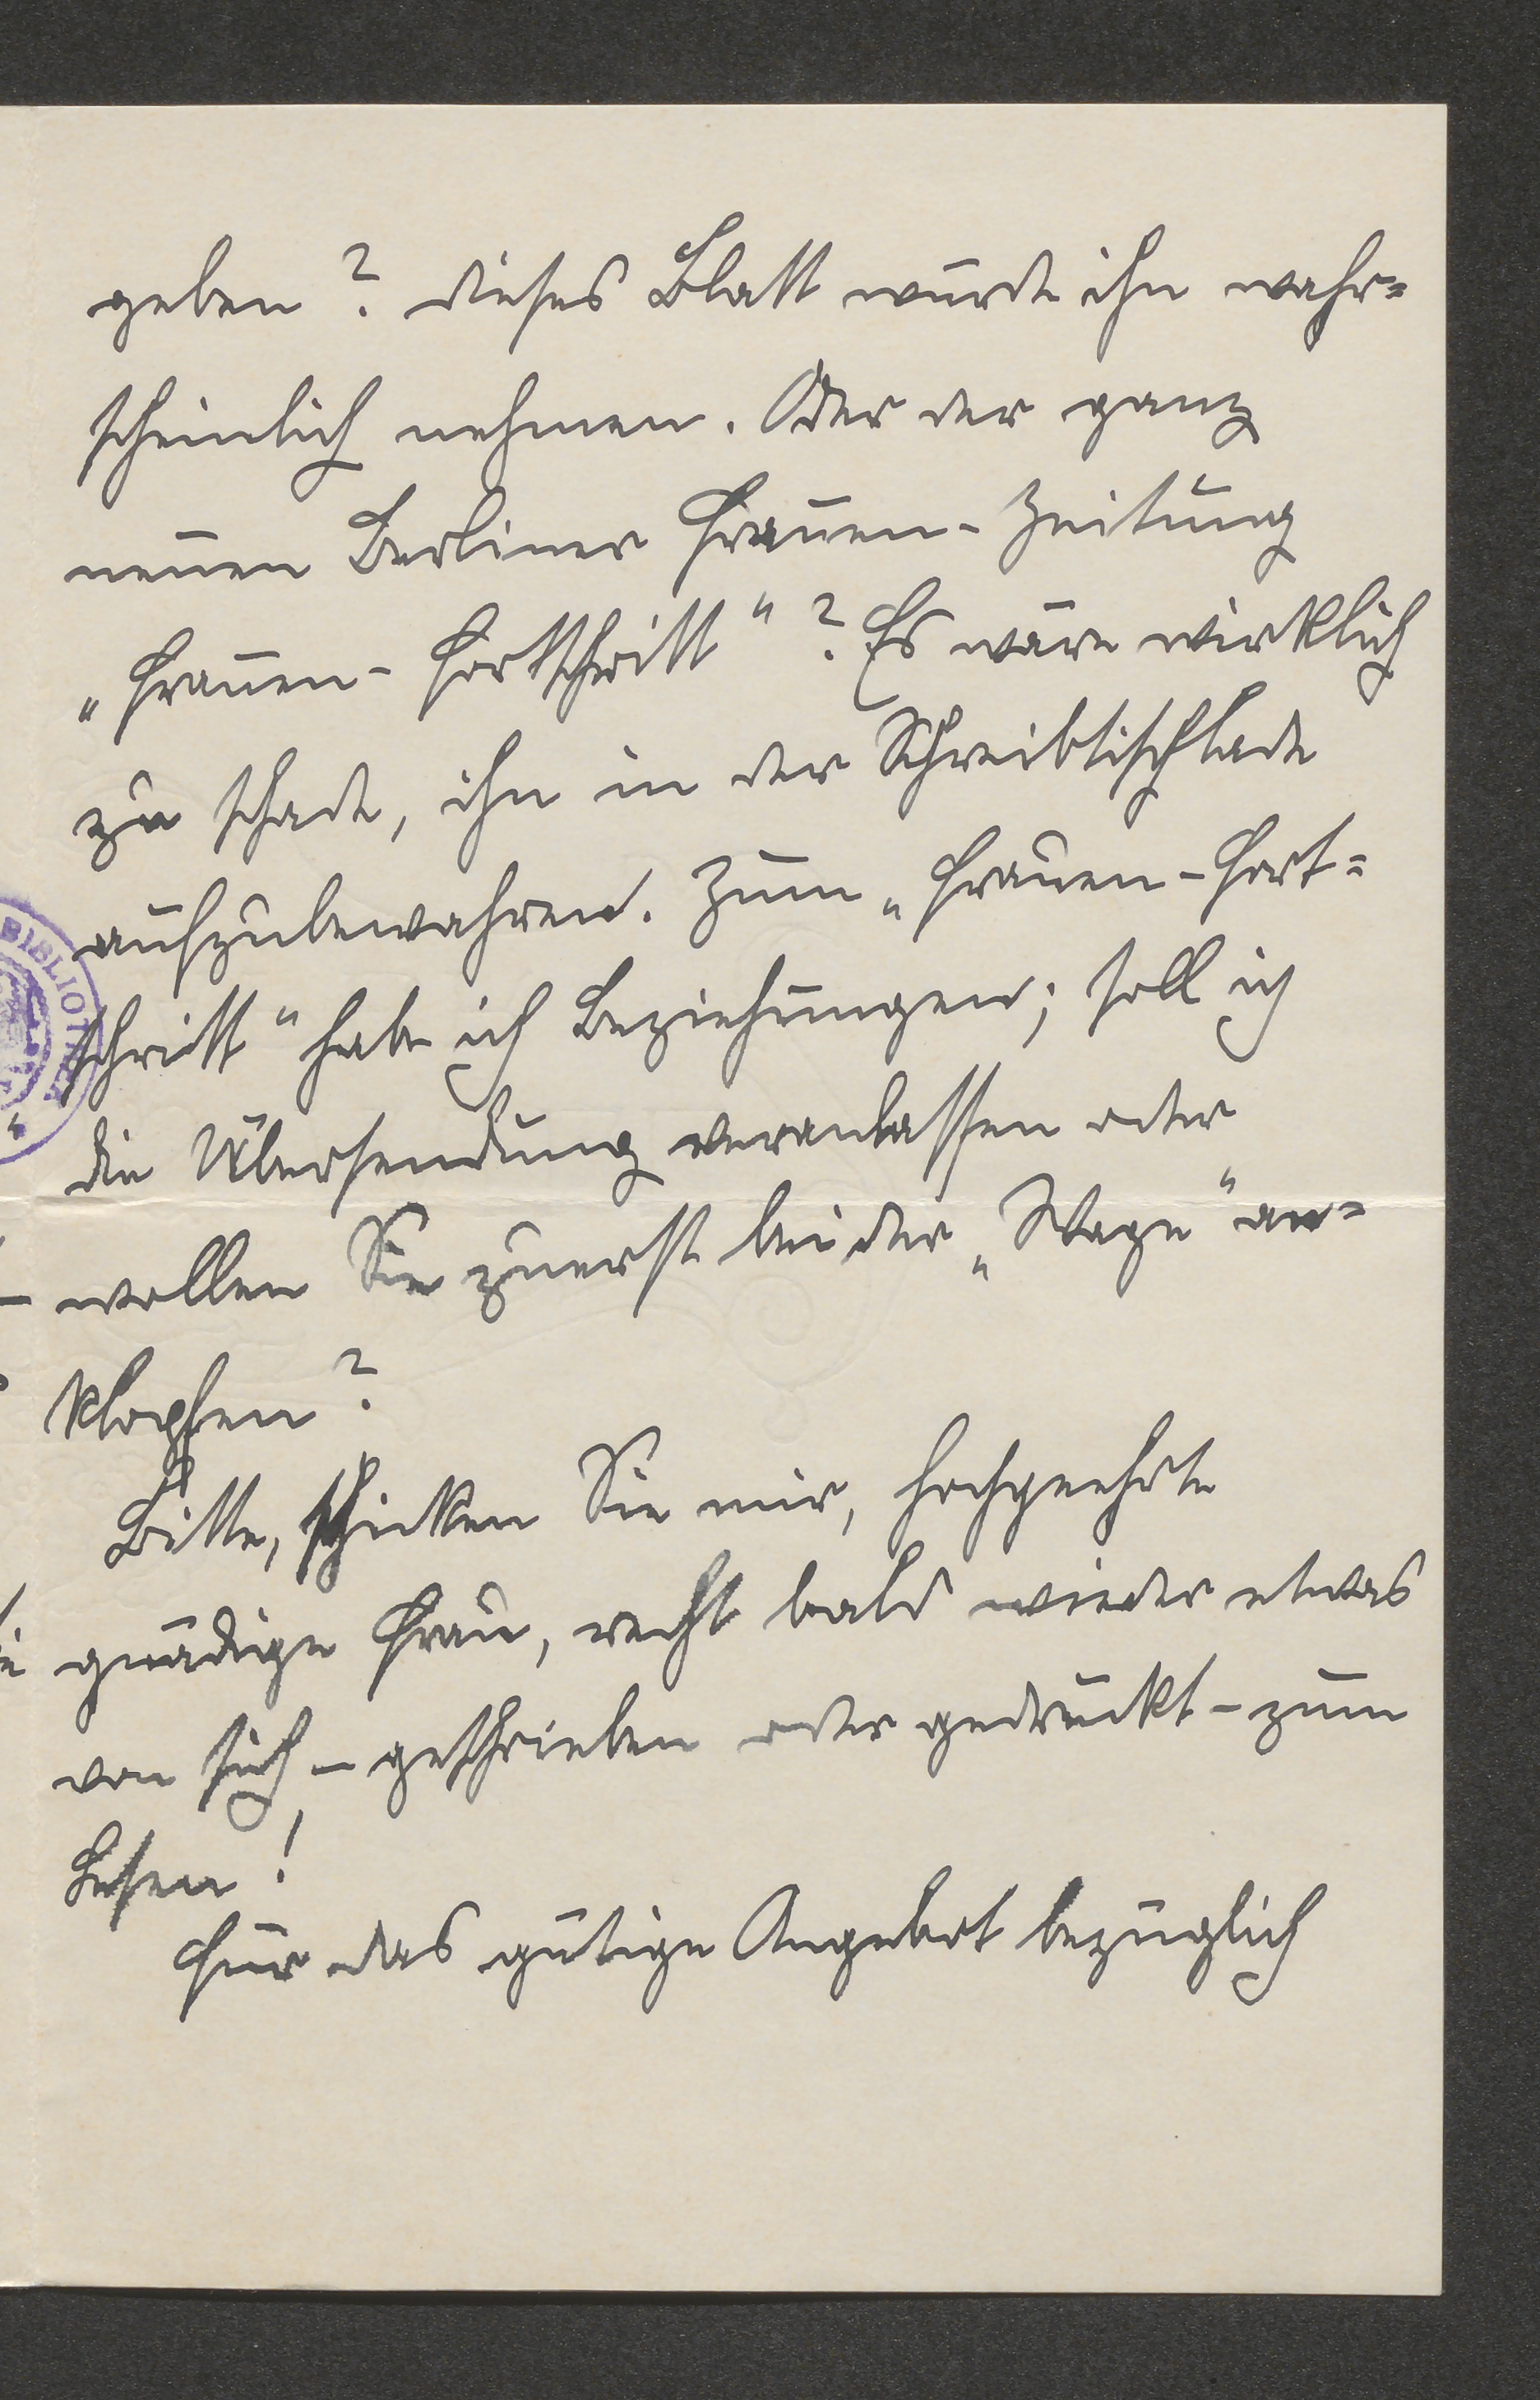 geben? Dieses Blatt würde ihn wahr=
scheinlich nehmen. Oder der ganz
neuen Berliner Frauen-Zeitung
„Frauen-Fortschritt"? Es wäre wirklich
zu schade, ihn in der Schreibtischlade
aufzubewahren. Zum „Frauen-Fort=
schritt" habe ich Beziehungen; soll ich
die Übersendung veranlassen oder
wollen Sie zuerst bei der „Wage" an=
klopfen?
Bitte, schicken Sie mir, hochgeehrte
gnädige Frau, recht bald wieder etwas
von sich – geschrieben oder gedruckt – zum
Lesen!
Für das gütige Angebot bezüglich
BIBLIOTHEK